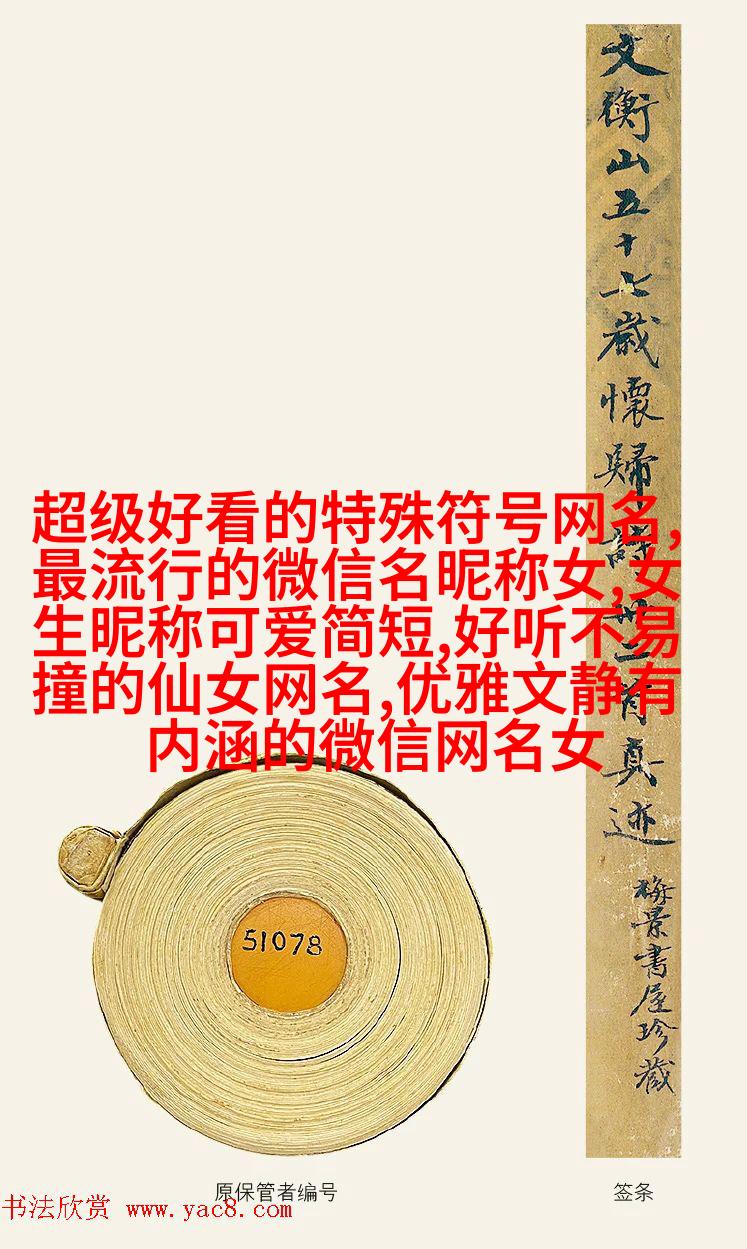 文衡山五十七歲懷歸詩卅二首真迹
梅景書屋珍藏
超级好看的特殊符号网名,
最流行的微信名昵称女,女
生昵称可爱简短,好听不易
撞的仙女网名,优雅文静有
内涵的微信网名女
51078
原保管者编号
签条
书法欣赏 www.yac8.com